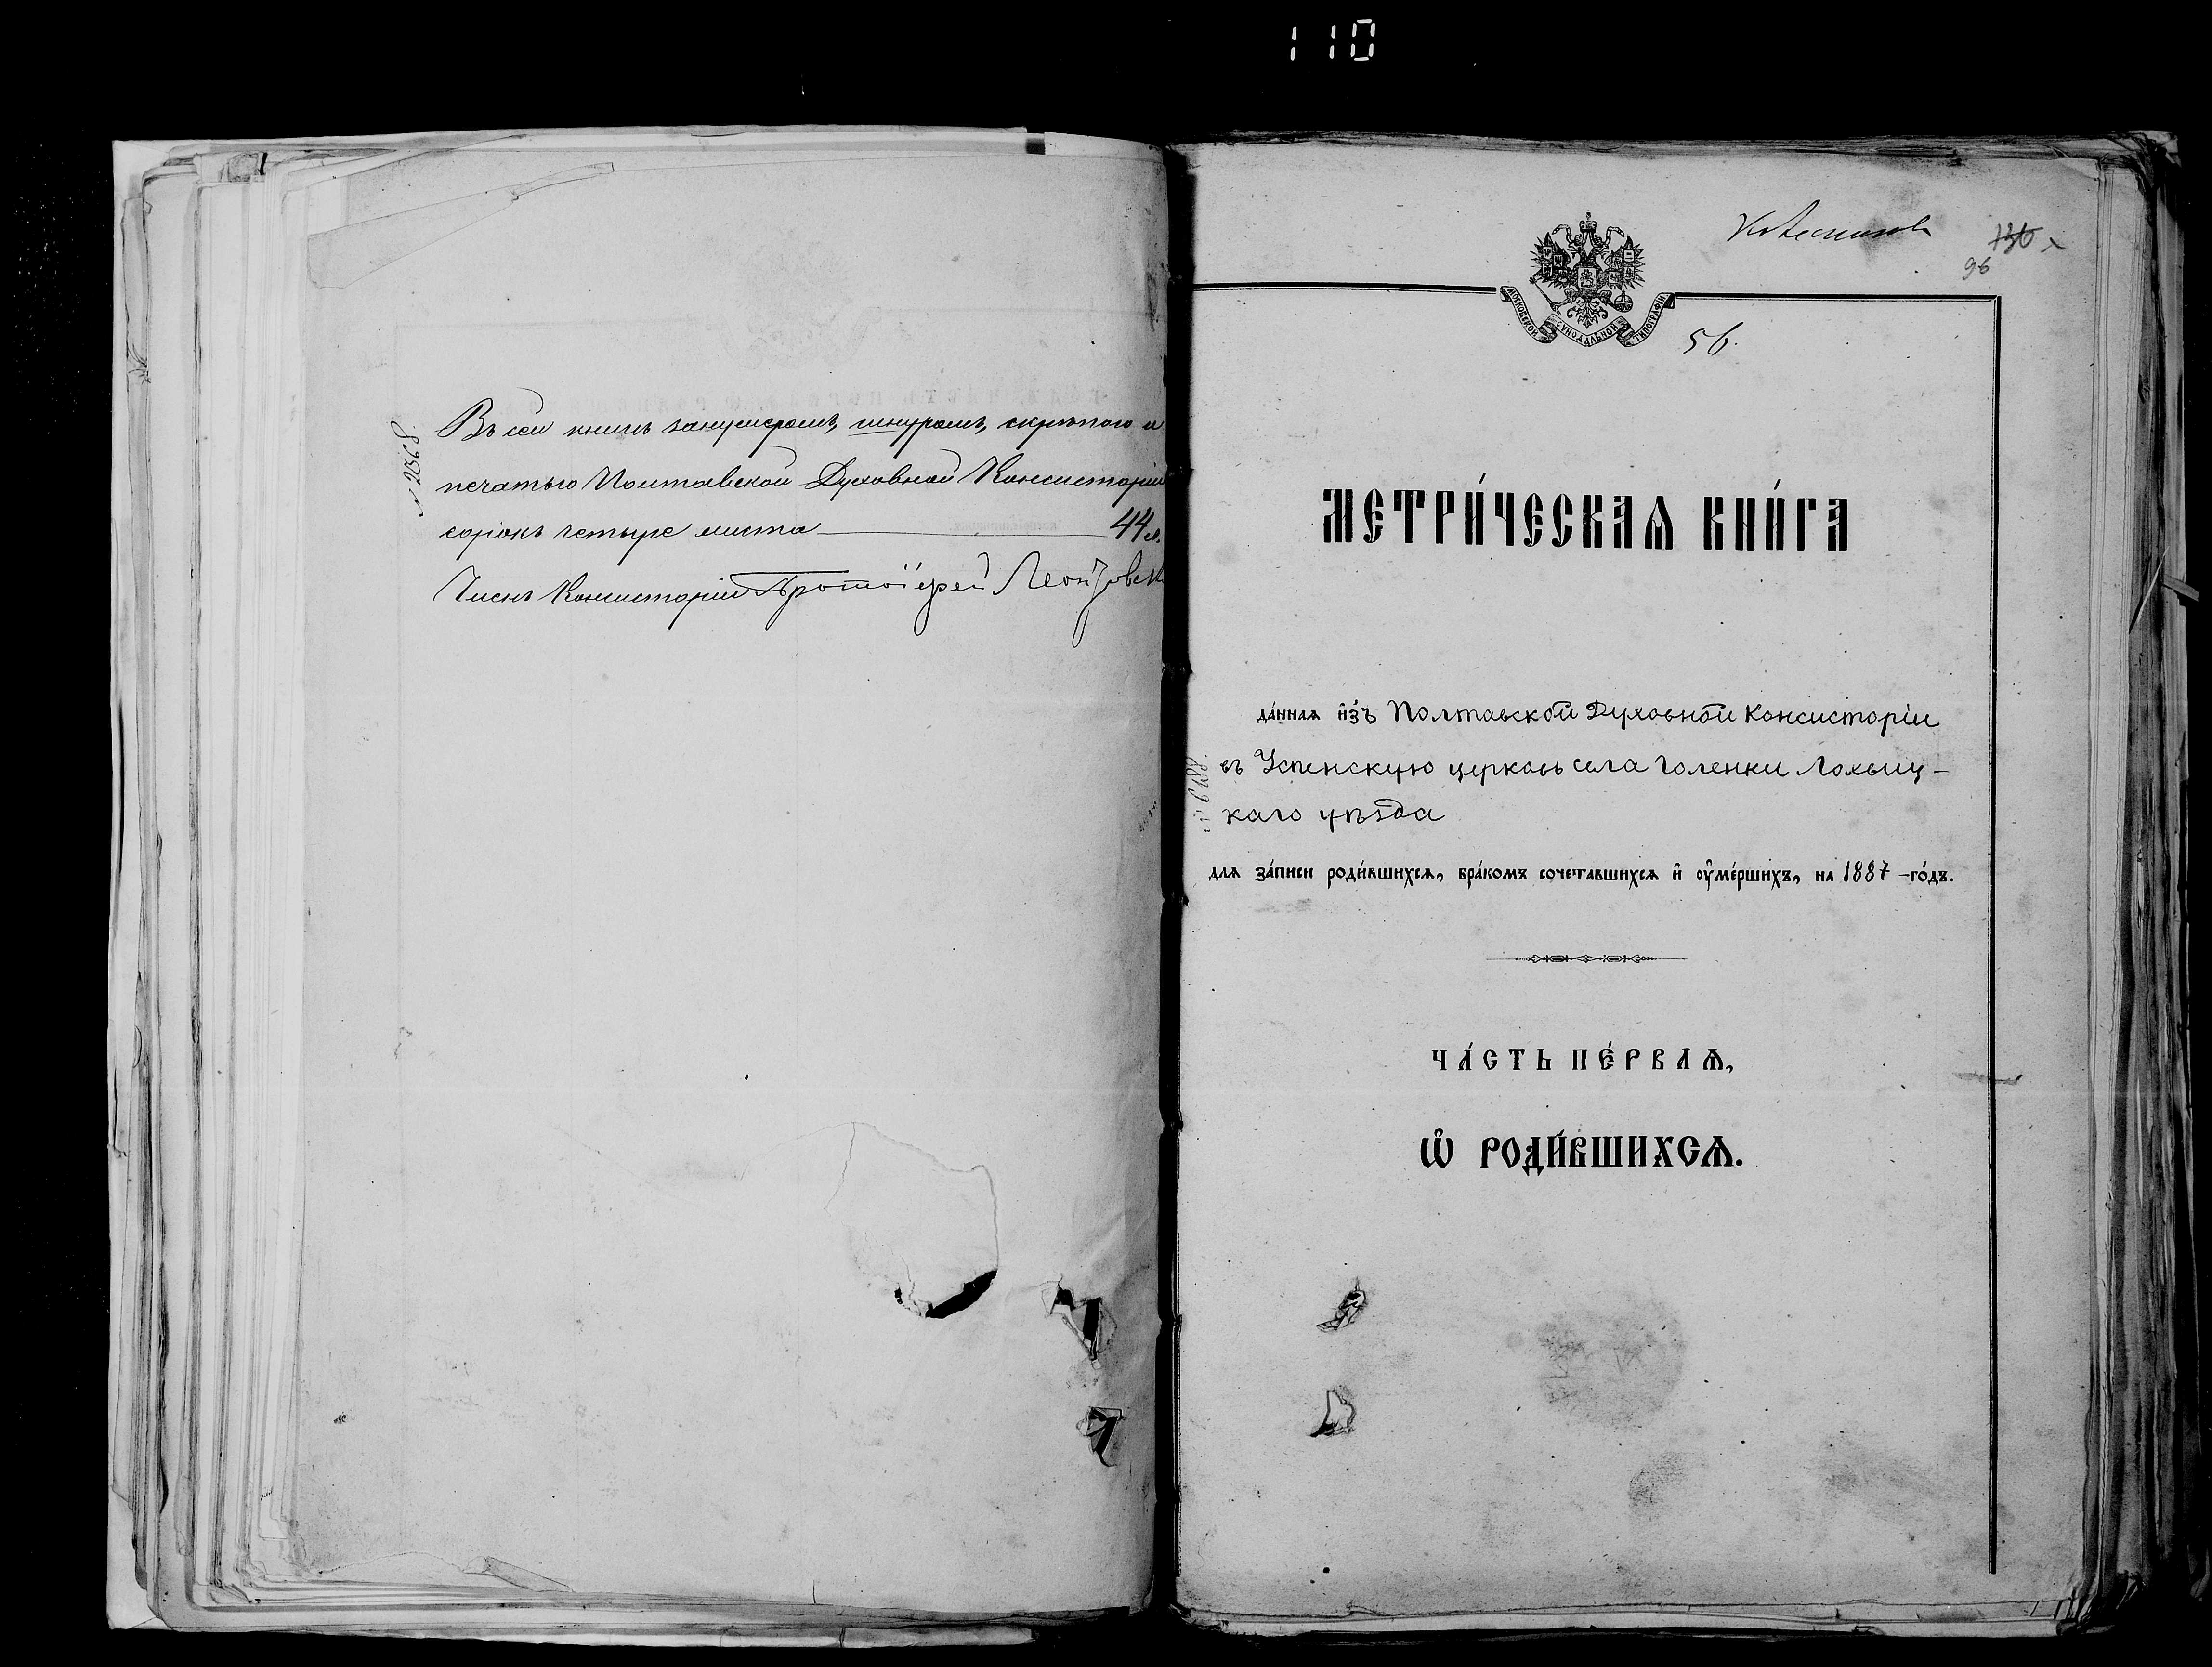 110
№ 2368.
Въ сей книгѣ занумеромъ, шнуромъ, скрѣпою и
печатью Полтавской Духовной Консисторіи
сорокъ четыре листа 44 л.
Членъ Консисторіи Протоіерей
96
МОСКОВСКОЙ СѴНОДАЛЬНОЙ ТИПОГРАФІИ
56.
МЕТРИ́ЧЕСКАѦ КНИ́ГА
да́ннаѧ и҆з̾ъ Полтавской Духовной Консисторіи
въ Успенскую церковь села Голенки Лохвиц-
каго уѣзда
длѧ за́писи роди́вшихсѧ, бра́комъ сочета́вшихсѧ и҆ ᲂу҆ме́ршихъ, на 1887 -го́дъ.
ЧА́СТЬ ПЕ́РВАѦ,
Ѽ РОДИ́ВШИХСѦ.